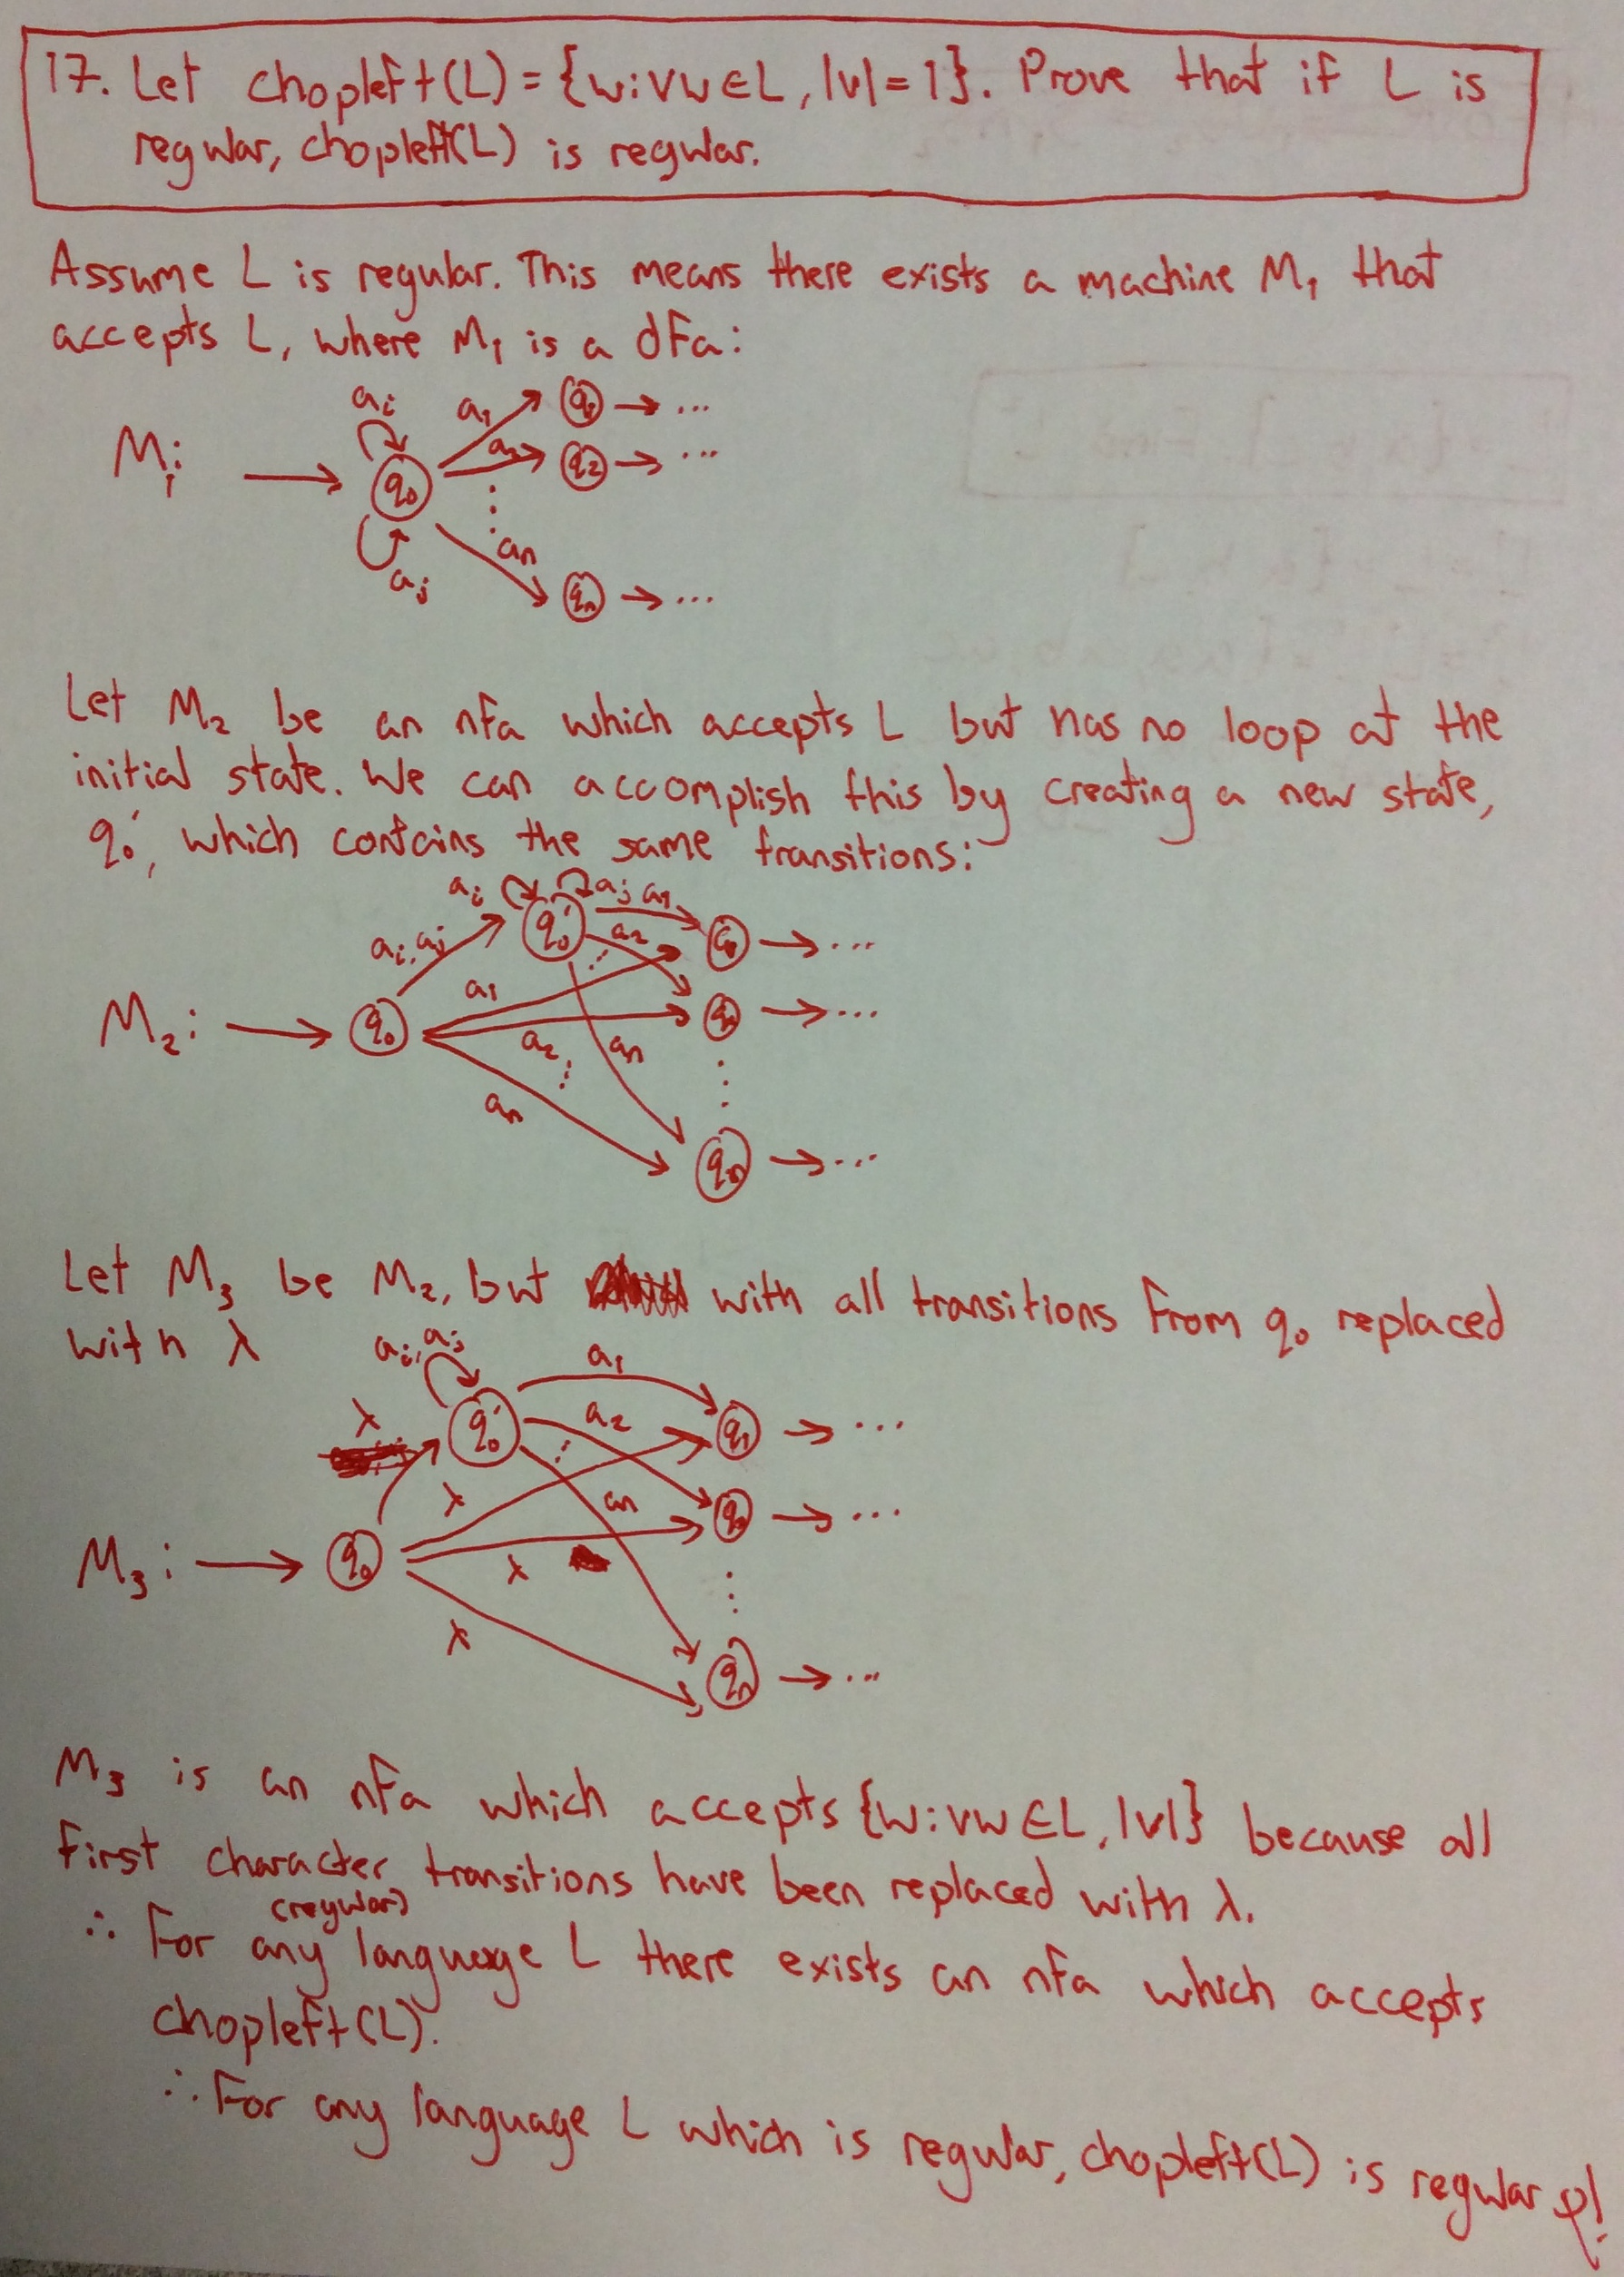 17. Let chopleft(L) = {w: vw ∈ L, |v| = 1}. Prove that if L is
regular, chopleft(L) is regular.
Assume L is regular. This means there exists a machine M₁ that
accepts L, where M₁ is a dfa:
M₁: q₀ aᵢ aⱼ a₁ q₁ → ...
a₂ q₂ → ...
aₙ qₙ → ...
Let M₂ be an nfa which accepts L but has no loop at the
initial state. We can accomplish this by creating a new state,
q₀', which contains the same transitions:
aᵢ aⱼ a₁
aᵢ, aⱼ q₀' a₂ q₁ → ...
a₁
M₂: q₀ q₂ → ...
a₂ aₙ
aₙ
qₙ → ...
Let M₃ be M₂, but with all transitions from q₀ replaced
with λ
aᵢ, aⱼ a₁
λ q₀' a₂ q₁ → ...
λ aₙ q₂ → ...
M₃: q₀ λ
λ
qₙ → ...
M₃ is an nfa which accepts {w: vw ∈ L, |v|} because all
first character transitions have been replaced with λ.
(regular)
∴ For any language L there exists an nfa which accepts
chopleft(L).
∴ For any language L which is regular, chopleft(L) is regular